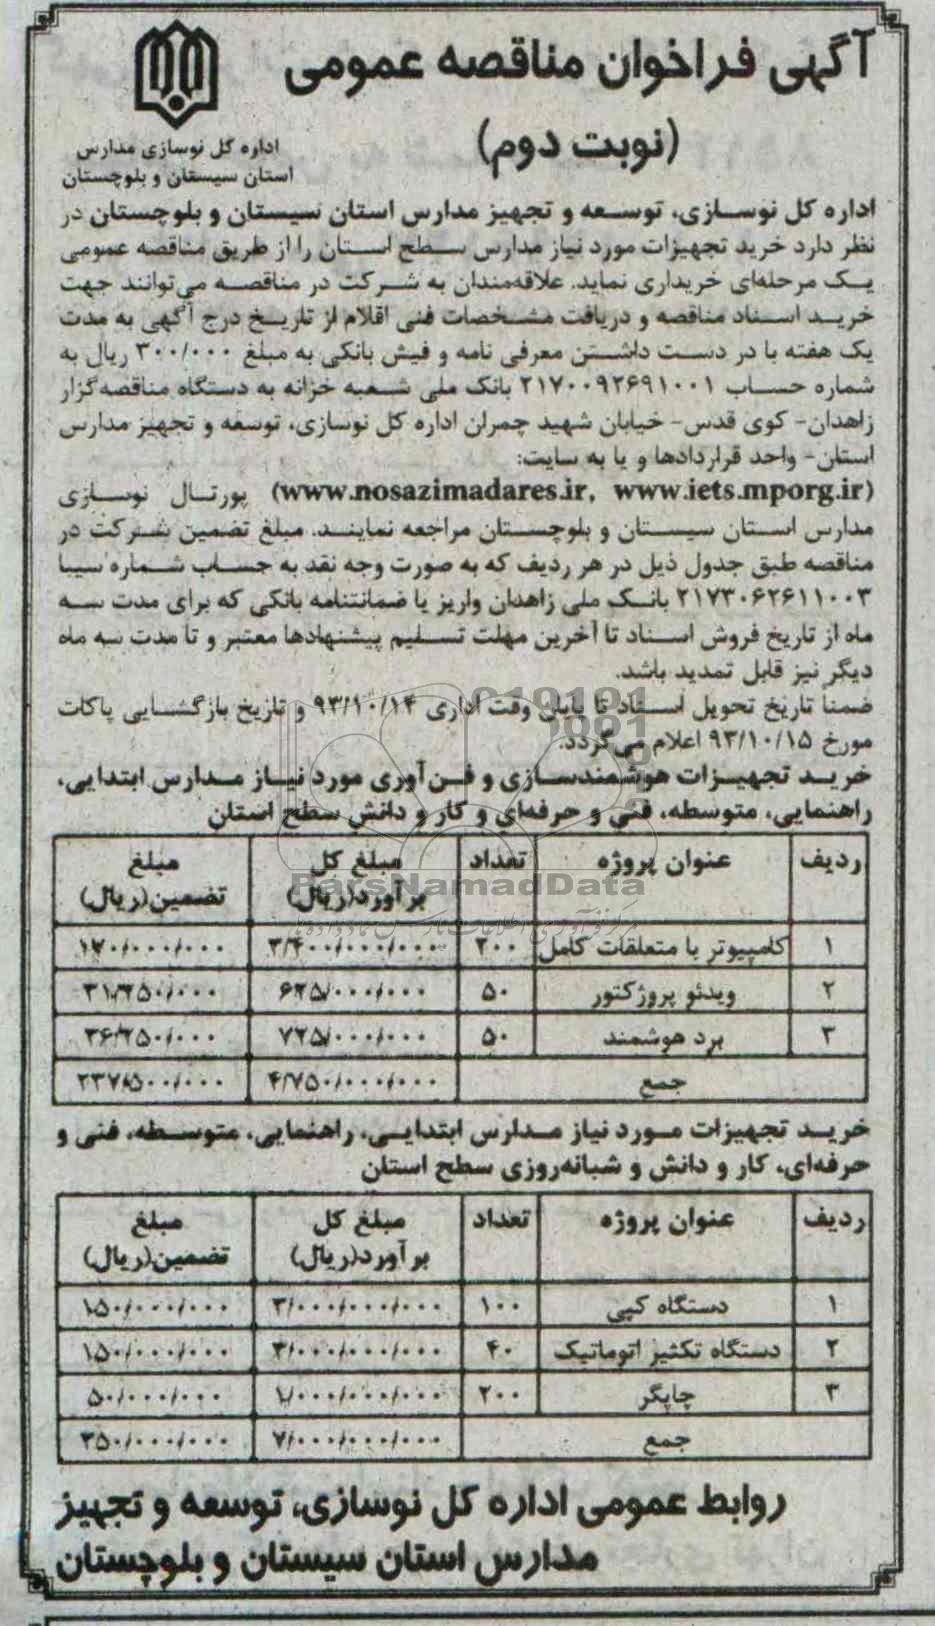 آگهی فراخوان مناقصه عمومی
(نوبت دوم)
اداره کل نوسازی مدارس
استان سیستان و بلوچستان
اداره کل نوسازی، توسعه و تجهیز مدارس استان سیستان و بلوچستان در
نظر دارد خرید تجهیزات مورد نیاز مدارس سطح استان را از طریق مناقصه عمومی
یک مرحله‌ای خریداری نماید. علاقه‌مندان به شرکت در مناقصه می‌توانند جهت
خرید اسناد مناقصه و دریافت مشخصات فنی اقلام از تاریخ درج آگهی به مدت
یک هفته با در دست داشتن معرفی نامه و فیش بانکی به مبلغ ۳۰۰/۰۰۰ ریال به
شماره حساب ۲۱۷۰۰۹۲۶۹۱۰۰۱ بانک ملی شعبه خزانه به دستگاه مناقصه‌گزار
زاهدان- کوی قدس- خیابان شهید چمران اداره کل نوسازی، توسعه و تجهیز مدارس
استان- واحد قراردادها و یا به سایت:
(www.nosazimadares.ir, www.iets.mporg.ir) پورتال نوسازی
مدارس استان سیستان و بلوچستان مراجعه نمایند. مبلغ تضمین شرکت در
مناقصه طبق جدول ذیل در هر ردیف که به صورت وجه نقد به حساب شماره سیبا
۲۱۷۳۰۶۲۶۱۱۰۰۳ بانک ملی زاهدان واریز یا ضمانتنامه بانکی که برای مدت سه
ماه از تاریخ فروش اسناد تا آخرین مهلت تسلیم پیشنهادها معتبر و تا مدت سه ماه
دیگر نیز قابل تمدید باشد.
ضمنا تاریخ تحویل اسناد تا پایان وقت اداری ۹۳/۱۰/۱۴ و تاریخ بازگشایی پاکات
مورخ ۹۳/۱۰/۱۵ اعلام می‌گردد.
خرید تجهیزات هوشمندسازی و فن‌آوری مورد نیاز مدارس ابتدایی،
راهنمایی، متوسطه، فنی و حرفه‌ای و کار و دانش سطح استان
ردیف عنوان پروژه تعداد مبلغ کل برآورد(ریال) مبلغ تضمین(ریال)
۱ کامپیوتر با متعلقات کامل ۲۰۰ ۳/۴۰۰/۰۰۰/۰۰۰ ۱۷۰/۰۰۰/۰۰۰
۲ ویدئو پروژکتور ۵۰ ۶۲۵/۰۰۰/۰۰۰ ۳۱/۲۵۰/۰۰۰
۳ برد هوشمند ۵۰ ۷۲۵/۰۰۰/۰۰۰ ۳۶/۲۵۰/۰۰۰
جمع ۴/۷۵۰/۰۰۰/۰۰۰ ۲۳۷/۵۰۰/۰۰۰
خرید تجهیزات مورد نیاز مدارس ابتدایی، راهنمایی، متوسطه، فنی و
حرفه‌ای، کار و دانش و شبانه‌روزی سطح استان
ردیف عنوان پروژه تعداد مبلغ کل برآورد(ریال) مبلغ تضمین(ریال)
۱ دستگاه کپی ۱۰۰ ۳/۰۰۰/۰۰۰/۰۰۰ ۱۵۰/۰۰۰/۰۰۰
۲ دستگاه تکثیر اتوماتیک ۴۰ ۳/۰۰۰/۰۰۰/۰۰۰ ۱۵۰/۰۰۰/۰۰۰
۳ چاپگر ۲۰۰ ۱/۰۰۰/۰۰۰/۰۰۰ ۵۰/۰۰۰/۰۰۰
جمع ۷/۰۰۰/۰۰۰/۰۰۰ ۳۵۰/۰۰۰/۰۰۰
روابط عمومی اداره کل نوسازی، توسعه و تجهیز
مدارس استان سیستان و بلوچستان
ParsNamadData